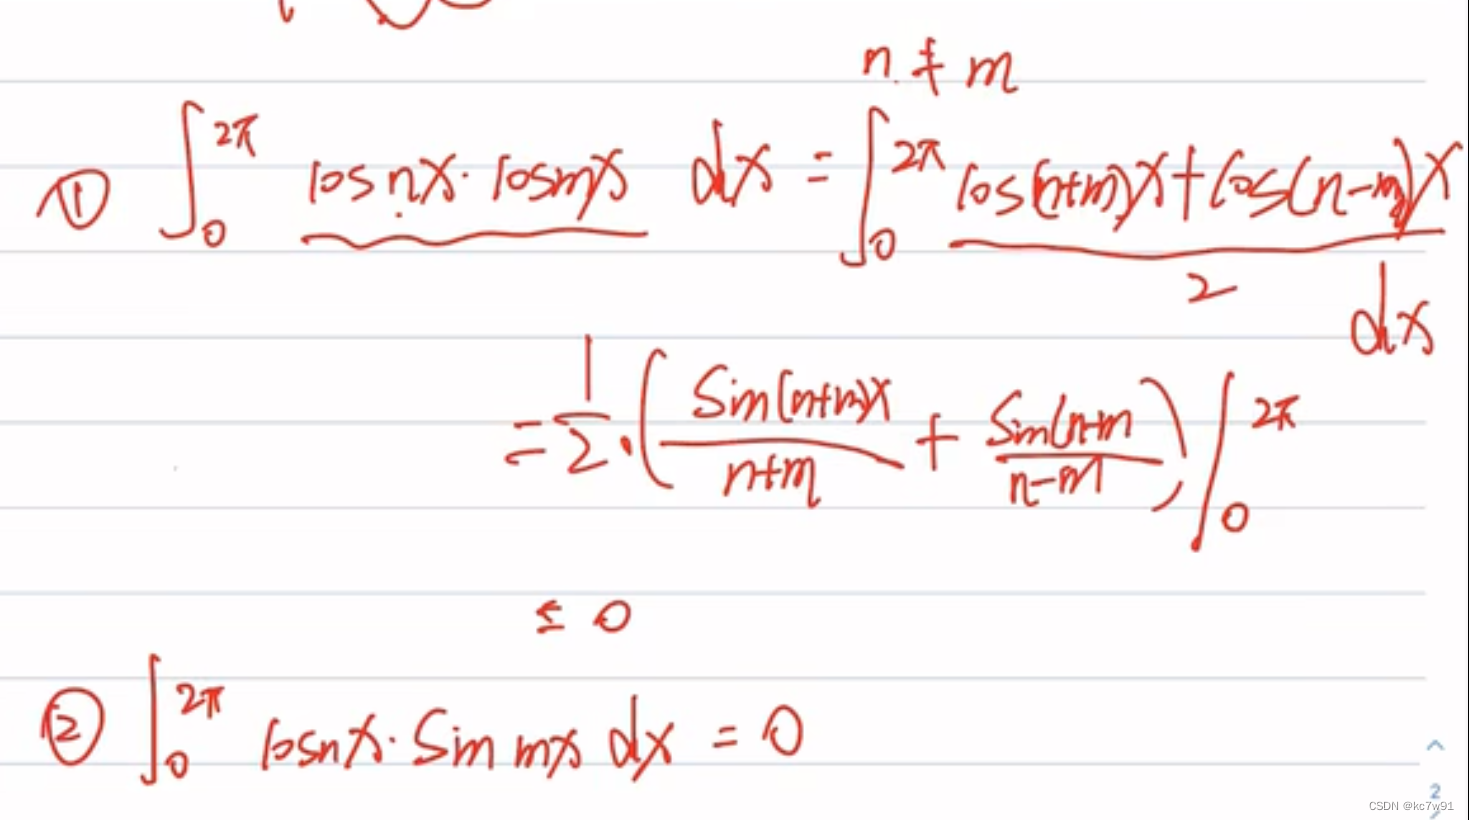 n ≠ m
① ∫₀^{2π} cos nx · cos mx dx = ∫₀^{2π} (cos(n+m)x + cos(n-m)x)/2 dx
= 1/2 · ( sin(n+m)x/(n+m) + sin(n-m/(n-m) ) |₀^{2π}
= 0
② ∫₀^{2π} cos nx · sin mx dx = 0
2
CSDN @kc7w91